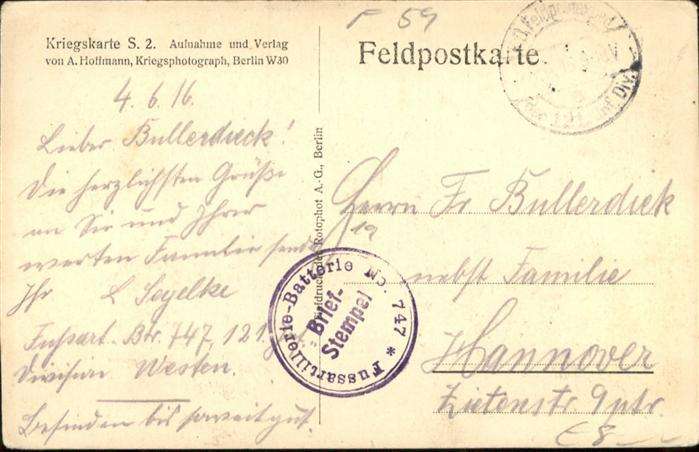 F 59
Kriegskarte S. 2. Aufnahme und Verlag
von A. Hoffmann, Kriegsphotograph, Berlin W30
Feldpostkarte.
4.6.16.
Lieber Bullerdieck!
Die herzlichsten Grüße
an Sie und Ihrer
werten Familie sendet
Ihr L Seyelke
Fussart. Btr. 747, 121.
Division Westen.
Befinden bis soweit gut.
Rotophot A.-G., Berlin
Fussartillerie-Batterie No. 747 *
Brief-
Stempel
Herrn Fr Bullerdieck
nebst Familie
Hannover
Zietenstr
Div.